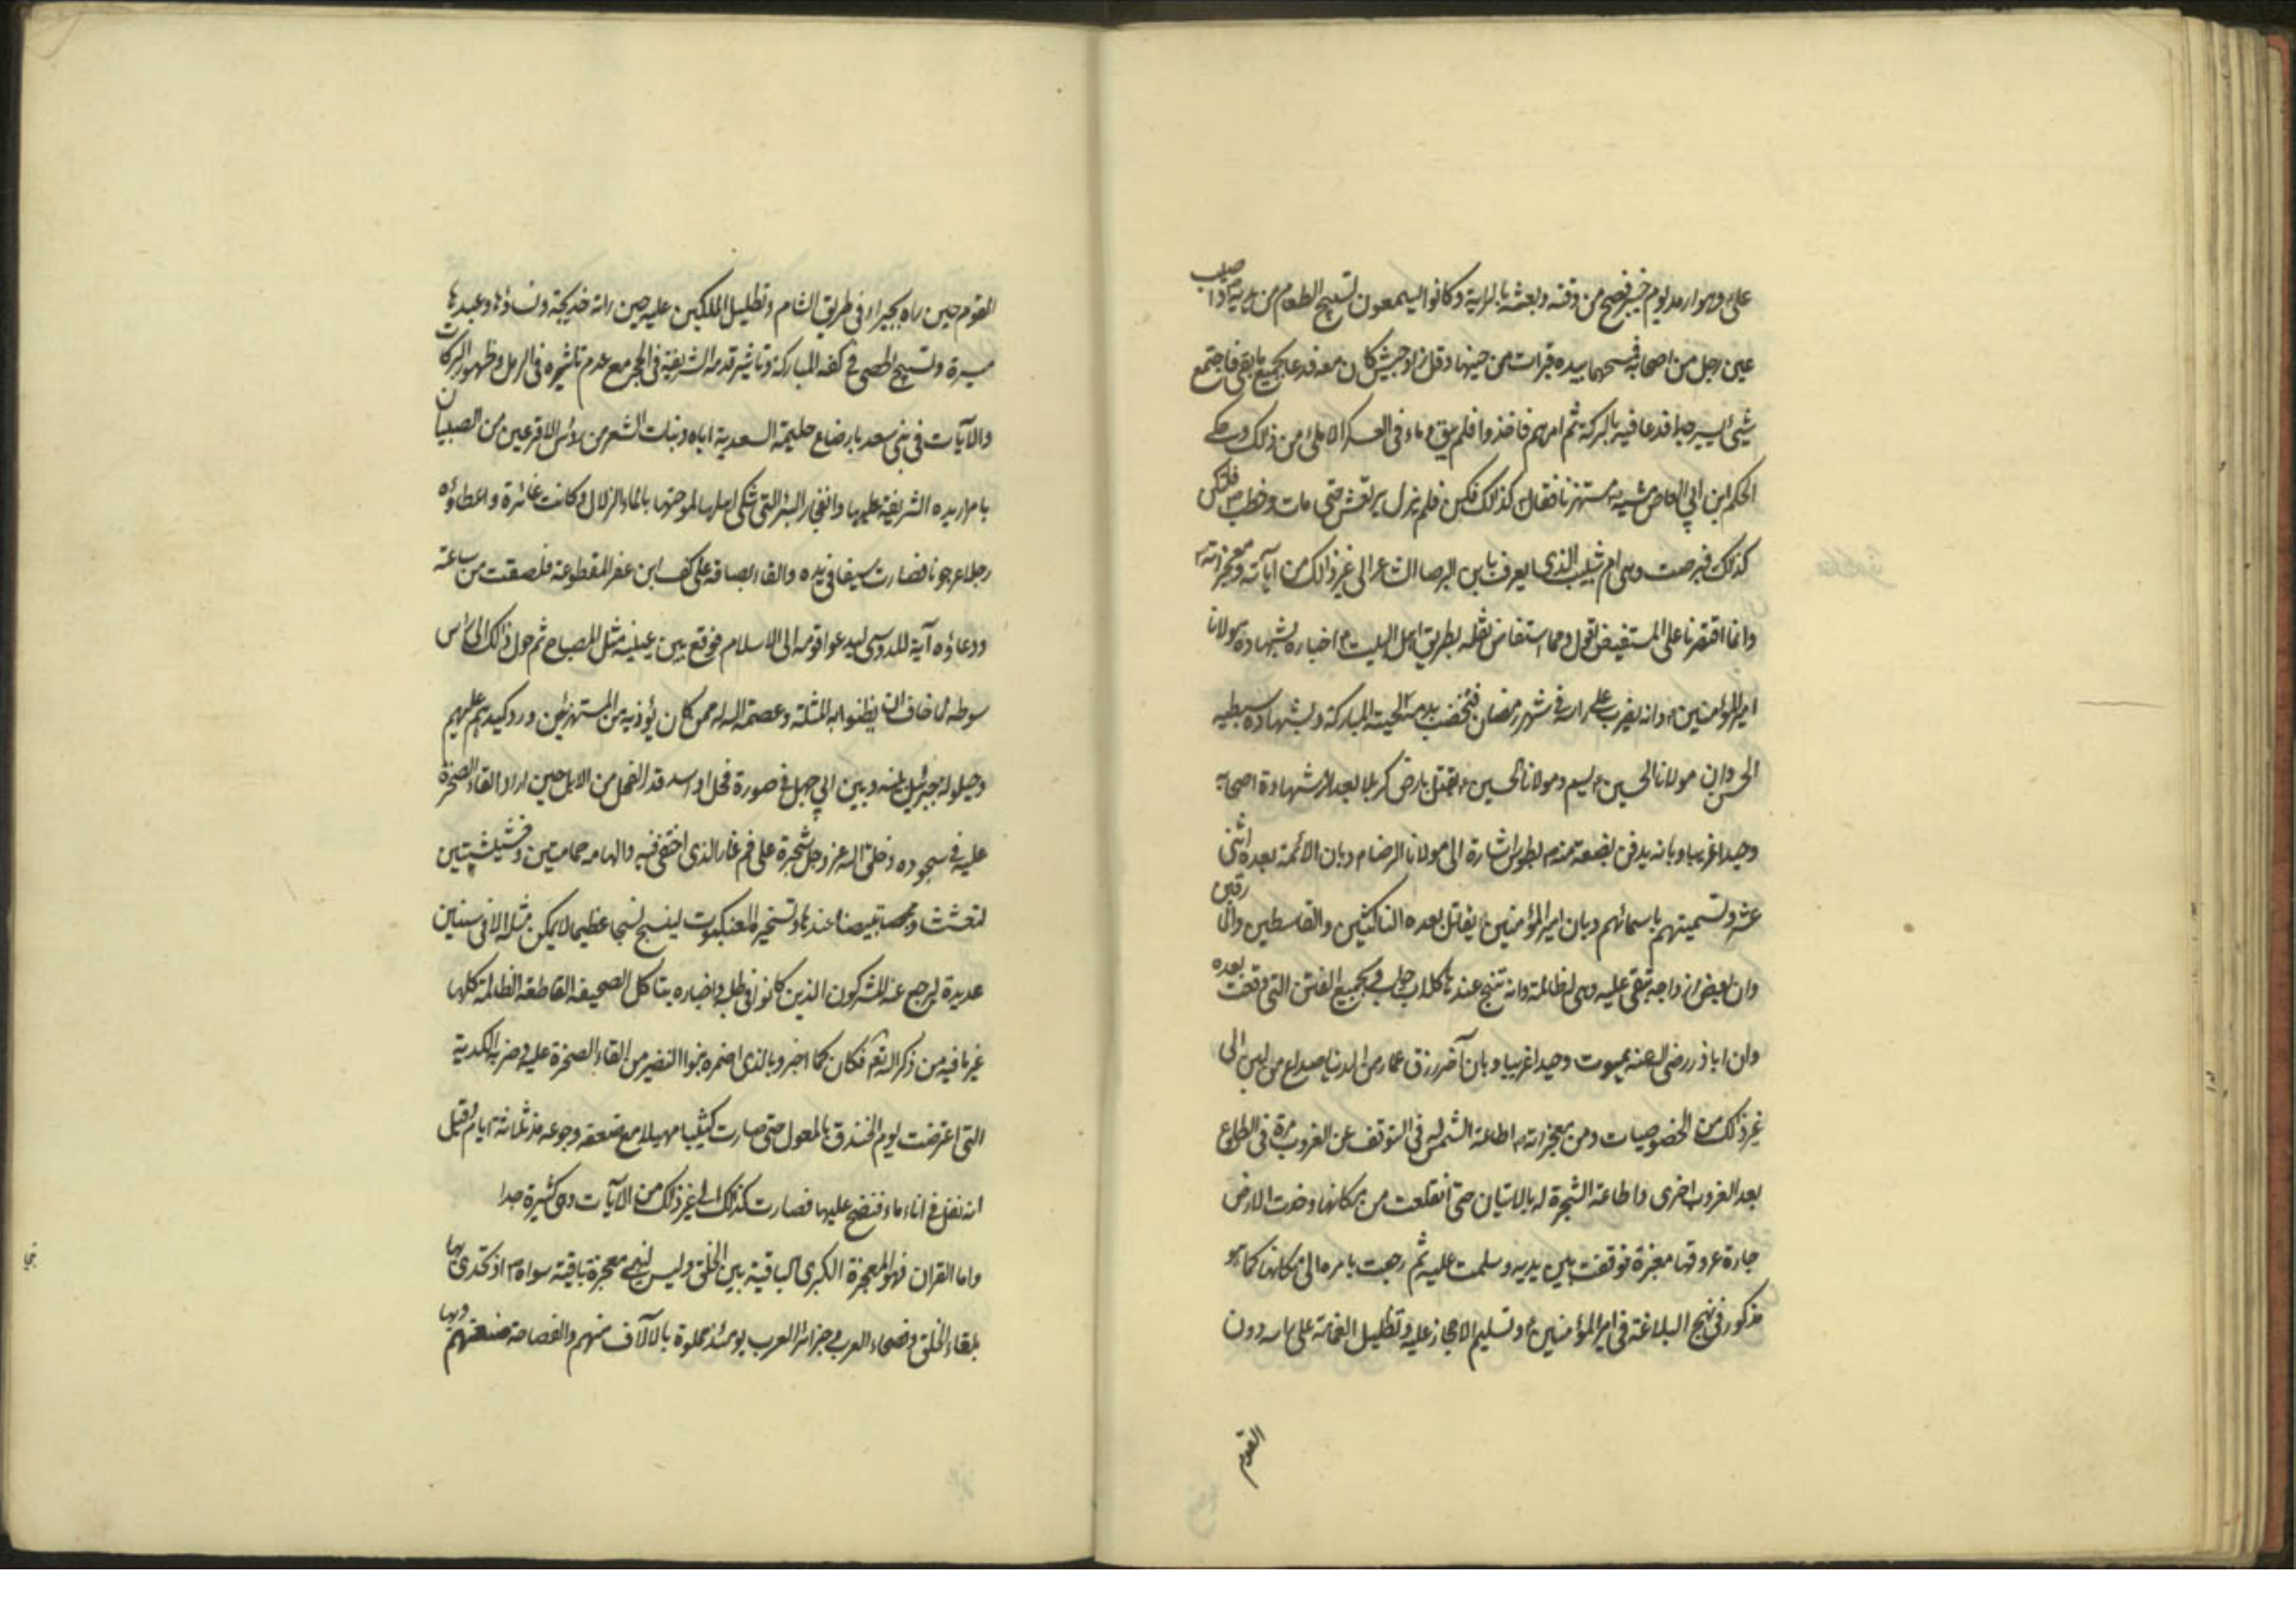 علي ع وهو ارمد يوم خيبر فصح من وقته وبعثه بالراية وكانوا يسمعون تسبيح الطعام من يديه ص واصيب
عين رجل من اصحابه فمسحها بيده فبرأت من حينها وقل زاد جيش كان معه فدعا بجميع ما بقي فاجتمع
شيء يسير جدا فدعا فيه بالبركة ثم امرهم فاخذوا فلم يبق وعاء في العسكر الا ملئ من ذلك وحكى
الحكم ابن ابي العاص مشيه مستهزئا فقال كذلك فكن فلم يزل يرتعش حتى مات وخطب ص
كذلك فبرصت وهي ام شبيب الذي يعرف بابن البرصاء الشاعر الى غير ذالك من آياته ومعجزاته ص
وانما اقتصرنا على المستفيض نقول ومما استفاض نقله بطريق اهل البيت ع اخباره بشهادة مولانا
امير المؤمنين ع وانه يضرب على راسه في شهر رمضان فتخضب بدمه لحيته المباركة وبشهادة سبطيه
الحسن وان مولانا الحسن ع يسم ومولانا الحسين ع يقتل بارض كربلا بعد شهادة اصحابه
وحيدا غريبا وبانه يدفن بضعة منه بطوس اشارة الى مولانا الرضا ع وبان الائمة بعده اثنى
عشر وتسميتهم باسمائهم وبان امير المؤمنين ع يقاتل بعده الناكثين والقاسطين والمارقين
وان بعض ازواجه تبغي عليه وهي لظالمة وانه تنبح عندها كلاب حواب وبجميع الفتن التي وقعت بعده
وان اباذر رضي الله عنه يموت وحيدا غريبا وبان آخر رزق عمار من الدنيا صاع من لبن الى
غير ذلك من الخصوصيات ومن معجزاته ص اطاعة الشمس له في التوقف عن الغروب مرة وفي الطلوع
بعد الغروب اخرى واطاعة الشجرة له بالاتيان حتى انقلعت من مكانها وخدت الارض
جارة عروقها مغبرة فوقفت بين يديه وسلمت عليه ثم رجعت بامره الى مكانها كما هو
مذكور في نهج البلاغة في امير المؤمنين ع وتسليم الاحجار عليه وتظليل الغمامة على راسه دون
القوم
القوم حين راه بحيراء في طريق الشام وتظليل الملكين عليه حين راته خديجة ونساؤها وعبدها
ميسرة وتسبيح الحصى في كفه المباركة وتاثير قدمه الشريفة في الحجر مع عدم تاثيره في الرمل وظهور البركات
والآيات في بني سعد بارضاع حليمة السعدية اياه ونبات الشعر من رؤس الاقرعين من الصبيان
بامرار يده الشريفة عليها وانفجار البئر التي شكى اهلها لملوحتها بالماء الزلال وكانت غائرة واعطاؤه
رجلا عرجونا فصارت سيفا في يده والقاء بصاقه على كف ابن عفرا المقطوعة فلصقت من ساعته
ودعاؤه آية للدوسي ليدعوا قومه الى الاسلام فوقع بين عينيه مثل المصباح ثم حول ذالك الى راس
سوطه لما خاف ان يظنوا به المثلة وعصمة الله له ممن كان يؤذيه من المستهزئين ورد كيدهم عليهم
وحيلولة جبرئيل بينه وبين ابي جهل في صورة فحل او اسد قدر الفحل من الابل حين اراد القاء الصخرة
عليه في سجوده وخلق الله عز وجل شجرة على فم غار الذي اختفى فيه والهامه حمامتين وحشيتين
لتعششا وتبيضا عندها وتسخير العنكبوت لينسج نسجا عظيما لا يمكن مثله الا في سنين
عديدة ليرجع عنه المشركون الذين كانوا في طلبه واخباره بتاكل الصحيفة القاطعة الظالمة كلها
غير ما فيه من ذكر الله تعم فكان كما اخبر وبالذي اضمره بنوا النضير من القاء الصخرة عليه وضربه الكدية
التي اعترضت يوم الخندق بالمعول حتى صارت كثيبا مهيلا مع ضعفه وجوعه منذ ثلثة ايام وقيل
انه تفل في اناء ماء فنضح عليها فصارت كذلك الى غير ذلك من الآيات وهي كثيرة جدا
واما القران فهو المعجزة الكبرى الباقية بين الخلق وليس لنبي معجزة باقية سواه ص اذ تحدى بها
بلغاء الخلق وفصحاء العرب وجزائر العرب يومئذ مملوة بالآلاف منهم والفصاحة صنعتهم وبها